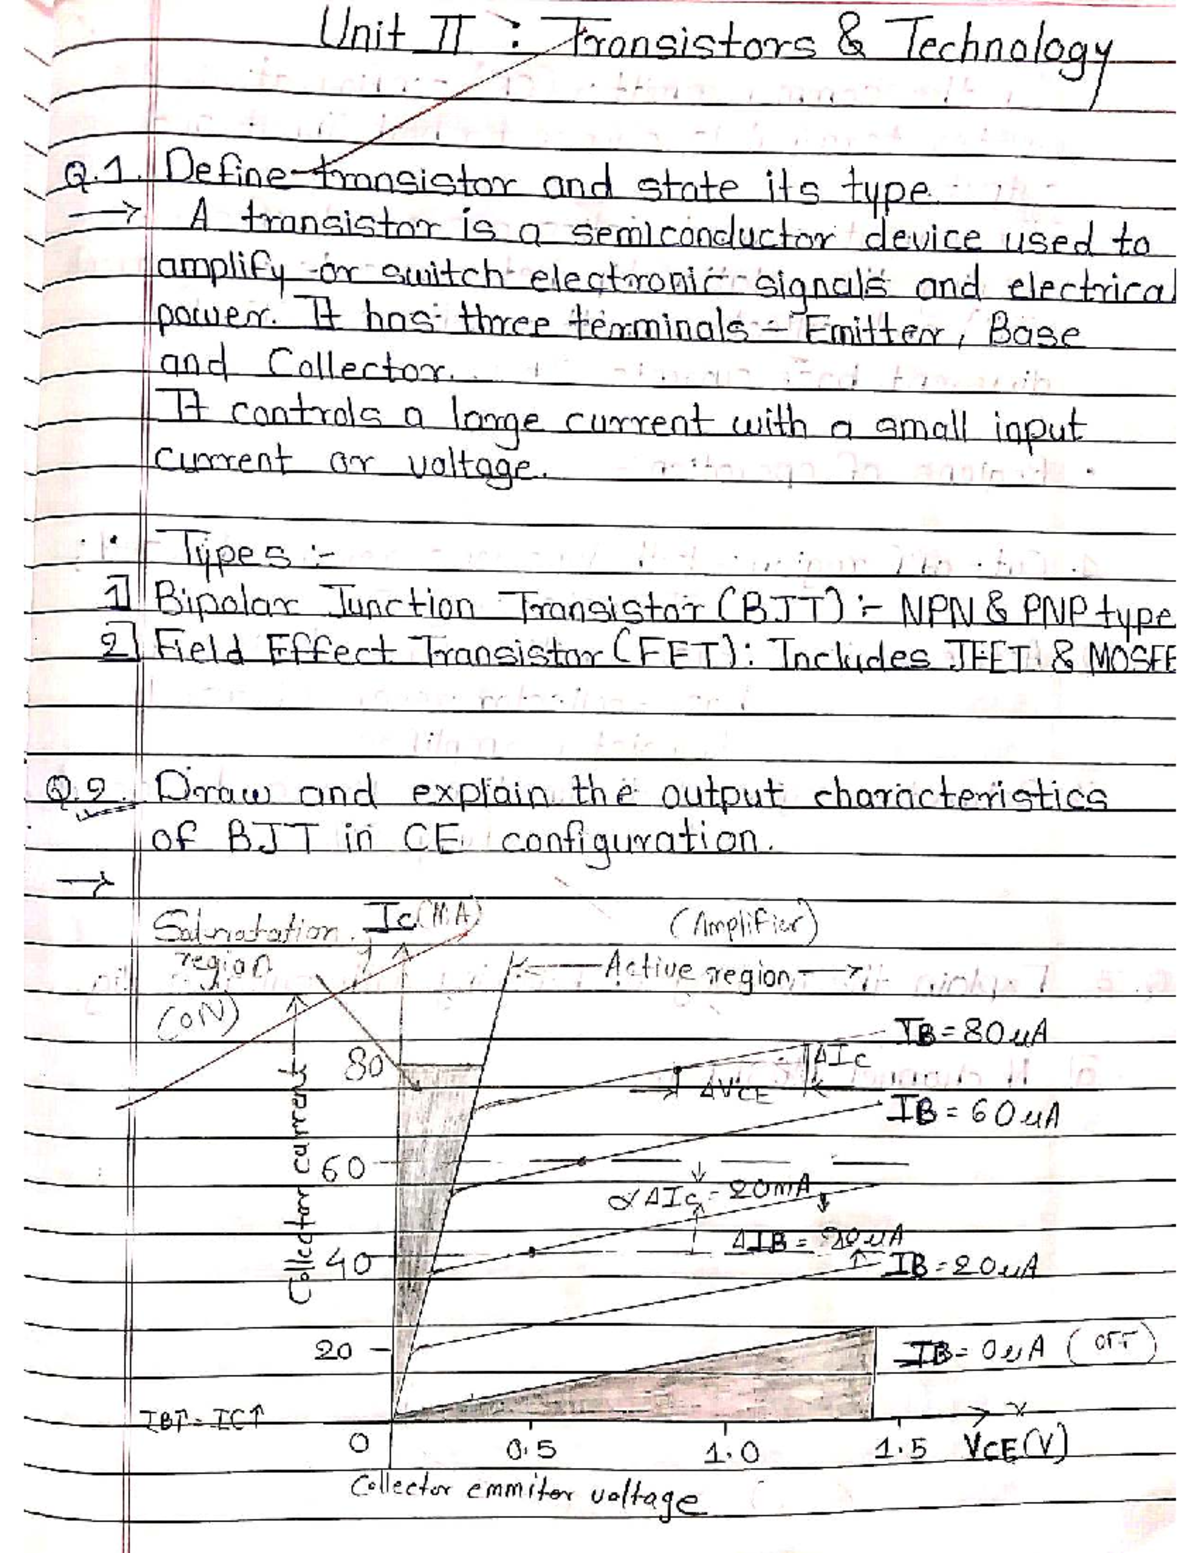 Unit II : Transistors & Technology
Q.1. Define transistor and state its type
→ A transistor is a semiconductor device used to
amplify or switch electronic signals and electrical
power. It has three terminals - Emitter, Base
and Collector.
It controls a large current with a small input
current or voltage.
Types :-
1] Bipolar Junction Transistor (BJT) :- NPN & PNP type
2] Field Effect Transistor (FET) : Includes JFET & MOSFE
Q.2. Draw and explain the output characteristics
of BJT in CE configuration.
→
Saturation region (ON)
Ic (MA)
(Amplifier)
← Active region →
Collector current →
80
60
40
20
0
IB = 80 uA
ΔIc
ΔVCE
IB = 60 uA
ΔIc = 20mA
ΔIB = 20 uA
IB = 20 uA
IB = 0 uA (OFF)
IB↑ = IC↑
0.5
1.0
1.5
VCE (V)
x
y
Collector emmiter voltage